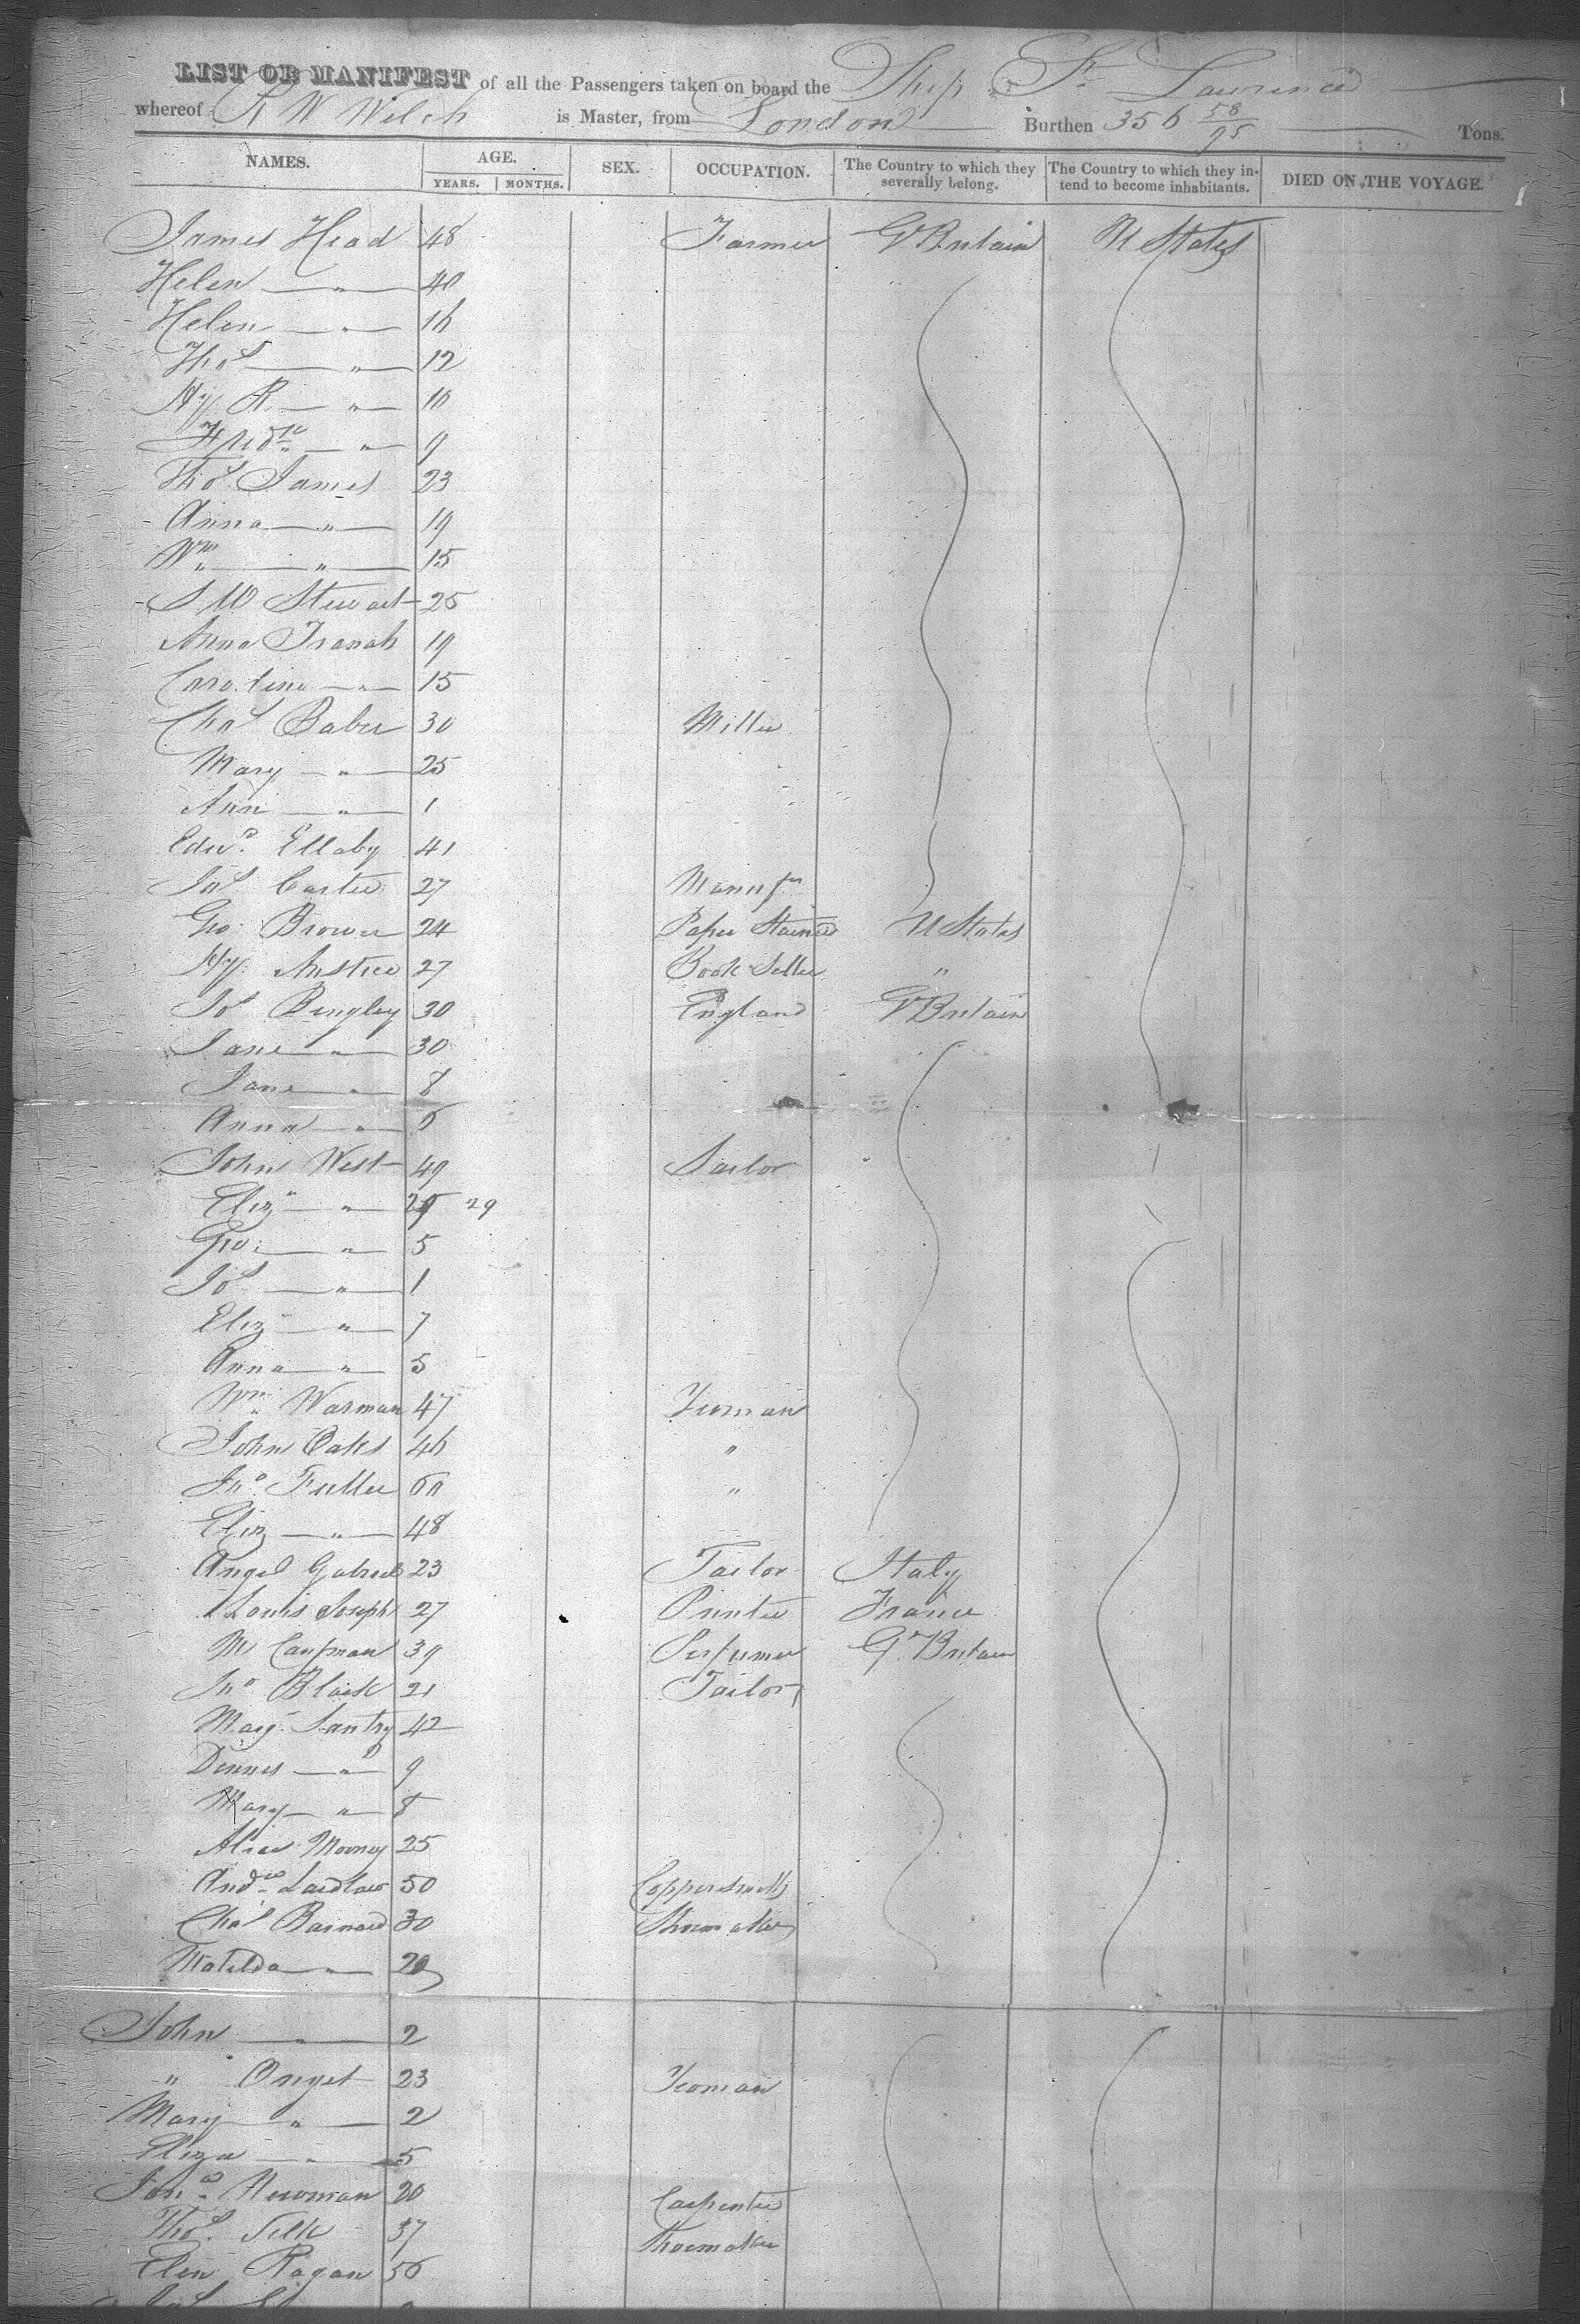 LIST OR MANIFEST of all the Passengers taken on board the Ship St Lawrence
whereof R W Welch is Master, from London Burthen 356 58/95 Tons.
NAMES. AGE. YEARS. MONTHS. SEX. OCCUPATION. The Country to which they severally belong. The Country to which they intend to become inhabitants. DIED ON THE VOYAGE.
James Head 48 Farmer Gt Britain U States
Helen " 40
Helen " 16
Thos " 12
Hy R. " 10
Fredk " 9
Thos James 23
Anna " 19
Wm " 15
S W Stewart 25
Anna 19
Carolina " 15
Chas Baber 30 Miller
Mary " 25
Ann " 1
Edwd Ellaby 41
Jas Carter 27 Manufr
Geo: Brower 24 Paper Stainer U States
Hy: Anstice 27 Book Seller "
Js Bingley 30 England Gt Britain
Jane " 30
Jane " 8
Anna " 6
John West 49 Sailor
Eliz " 29 29
Geo: " 5
Js " 1
Eliz " 7
Anna " 5
Wm Warman 47 Yeoman
John Oaks 46 "
Jno Fuller 60 "
Eliz " 48
Angel Gabriel 23 Tailor Italy
Louis Joseph 27 Printer France
M Caufman 39 Perfumer Gt Britain
Jno Black 21 Tailor
Mary Santry 42
Dennis " 9
Mary " 8
Alice Mooney 25
Andw Laidlaw 50 Coppersmith
Chas Barnard 30 Shoemaker
Matilda " 20
John " 2
" Onget 23 Yeoman
Mary " 2
Eliza " 5
Newman 20 Carpenter
Thos Silk 37 Shoemaker
Elen Ragan 56